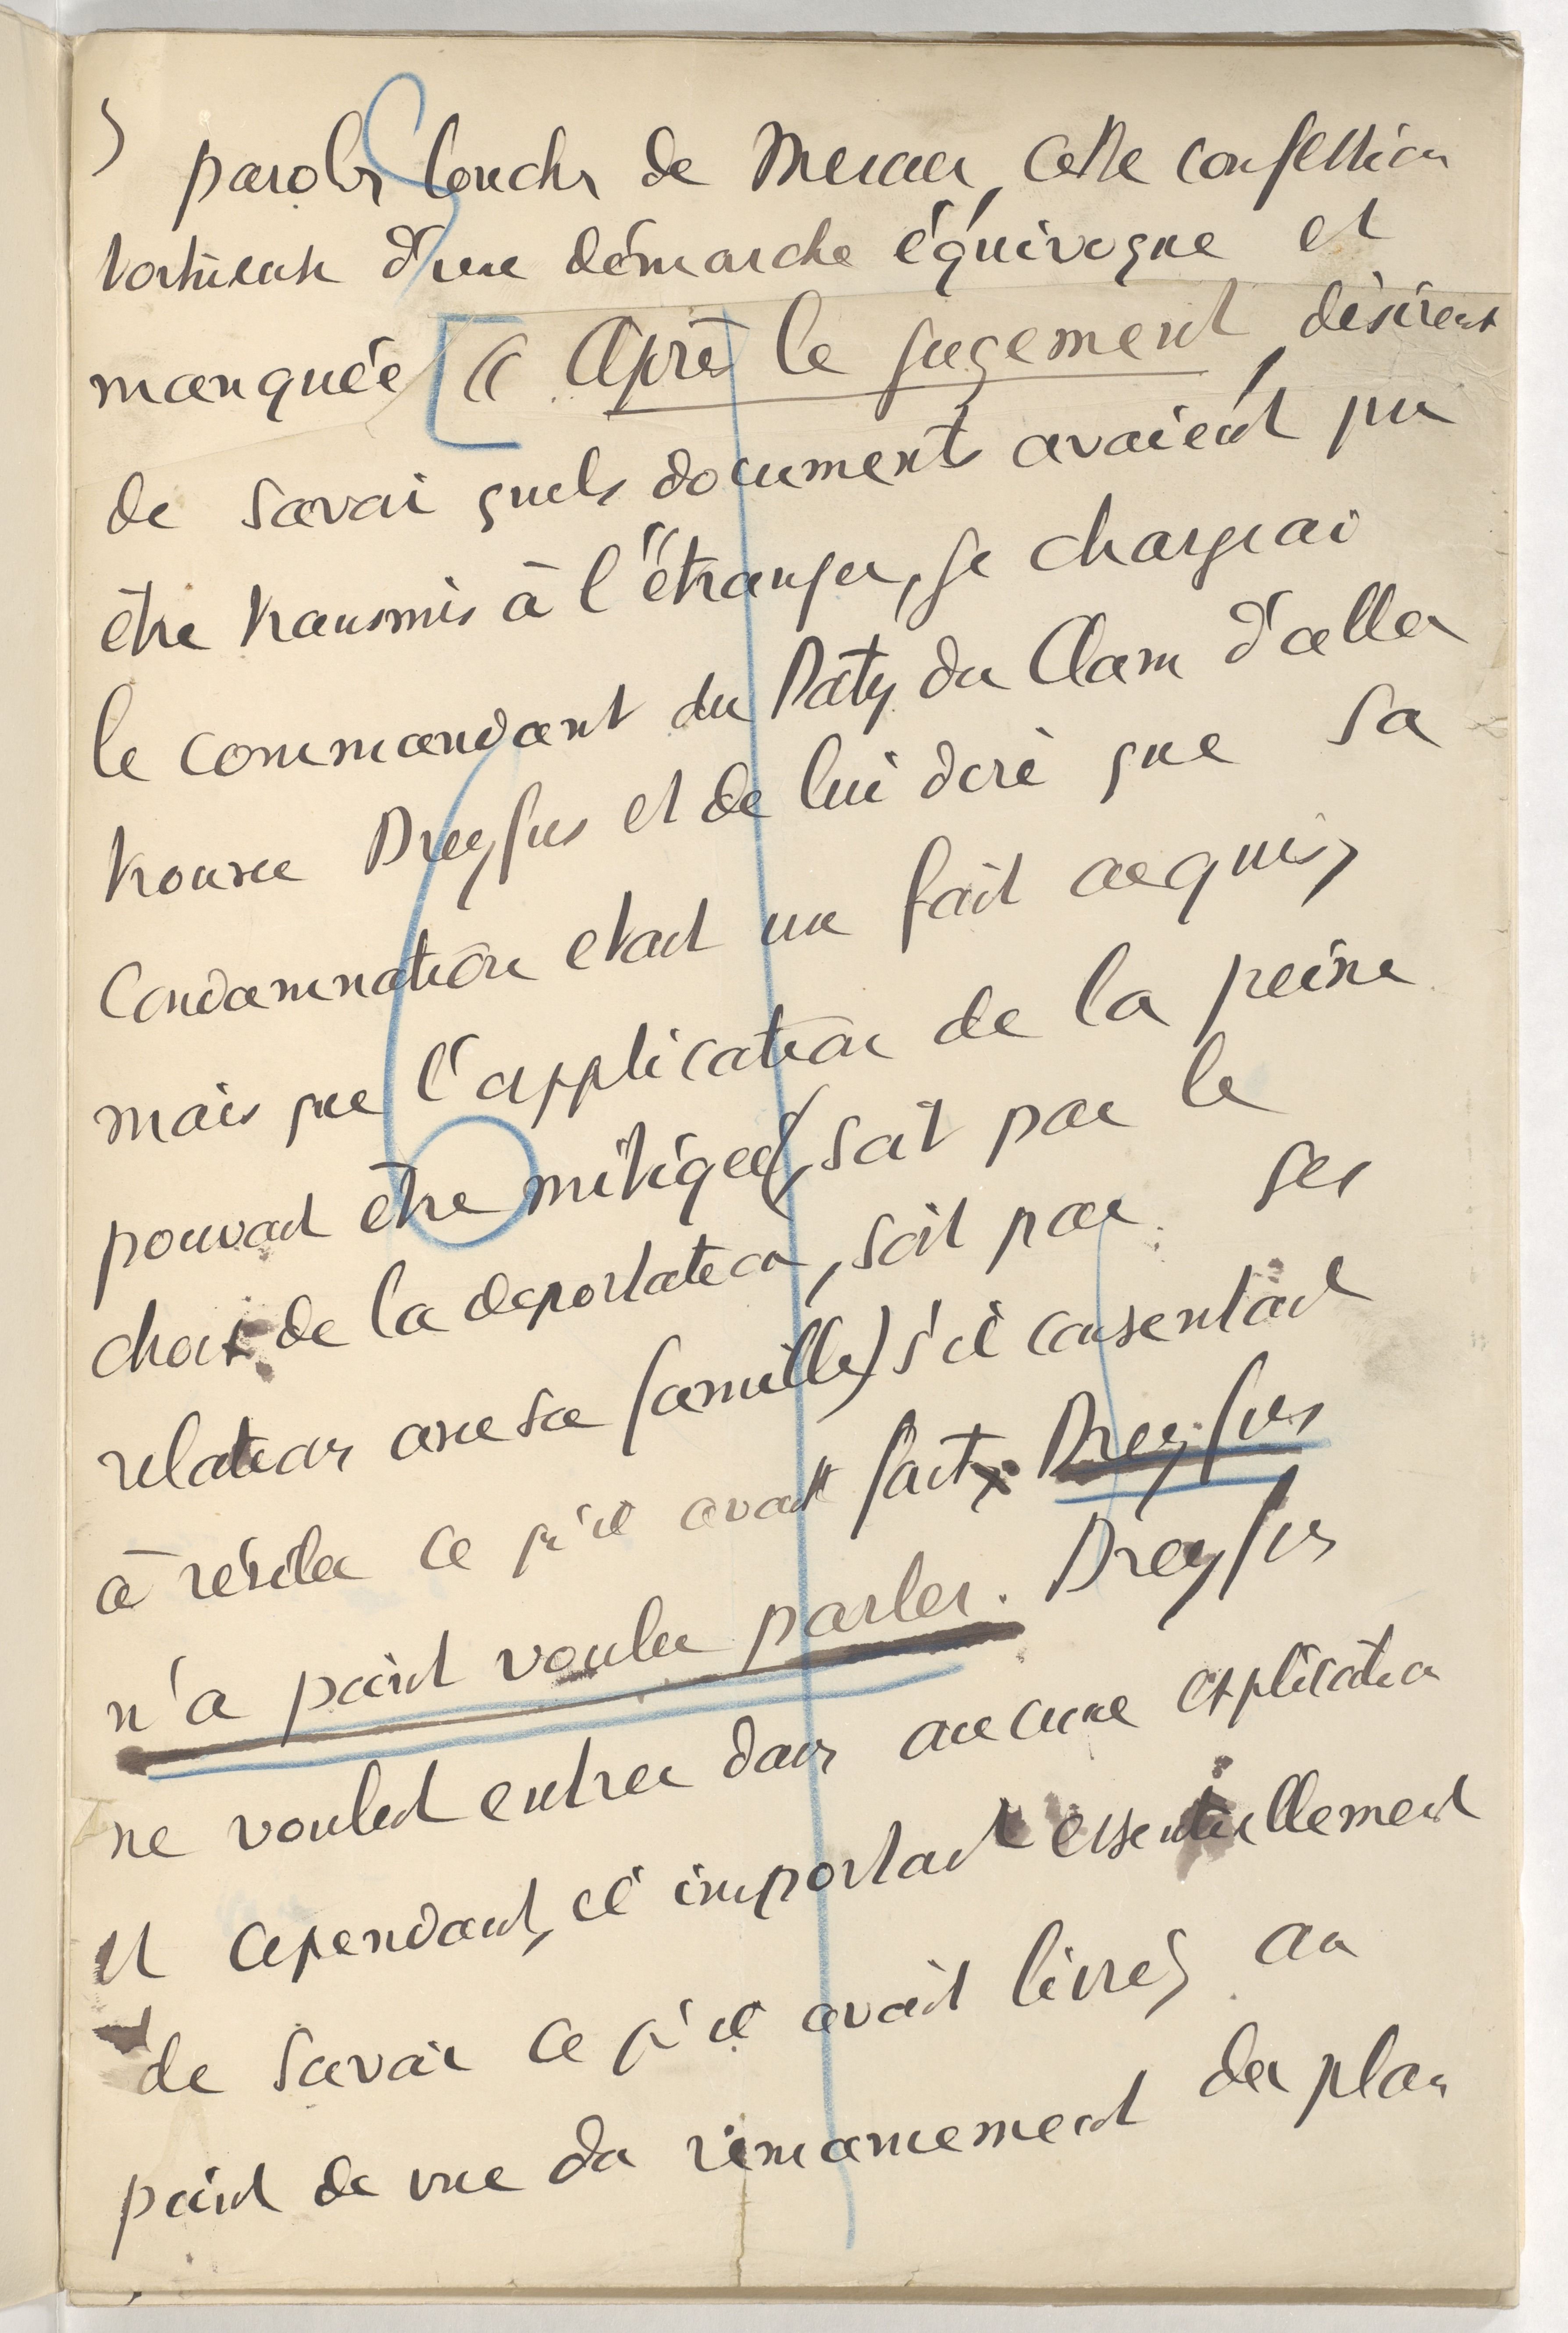 paroles louches de Mercier, cette confession
tortueuse d'une démarche équivoque et
manquée [« Après le jugement, désireux
de savoir quels documents avaient pu
être transmis à l'étranger, je chargeai
le commandant du Paty du Clam d'aller
trouver Dreyfus et de lui dire que sa
condamnation etait un fait acquis,
mais que l'application de la peine
pouvait être mitigée (, soit par le
choix de la deportation, soit par ses
relations avec sa famille) s'il consentait
à révéler ce qu'il avait fait. Dreyfus
n'a point voulu parler. Dreyfus
ne voulut entrer dans aucune explication
et cependant, il importait essentiellement
de savoir ce qu'il avait livré, au
point de vue du remaniement du plan